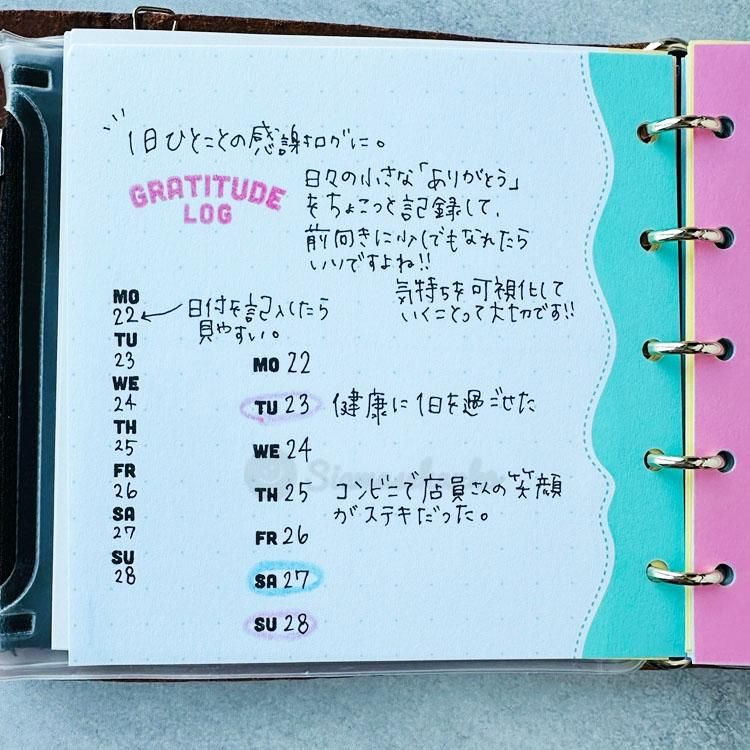 1日ひとことの感謝ログに。
GRATITUDE
LOG
日々の小さな「ありがとう」
をちょこっと記録して、
前向きに少しでもなれたら
いいですよね!!
気持ちを可視化して
いくことって大切です!!
MO
22
日付を記入したら
見やすい。
TU
23
WE
24
TH
25
FR
26
SA
27
SU
28
MO 22
TU 23 健康に1日を過ごせた
WE 24
TH 25 コンビニで店員さんの笑顔
がステキだった。
FR 26
SA 27
SU 28